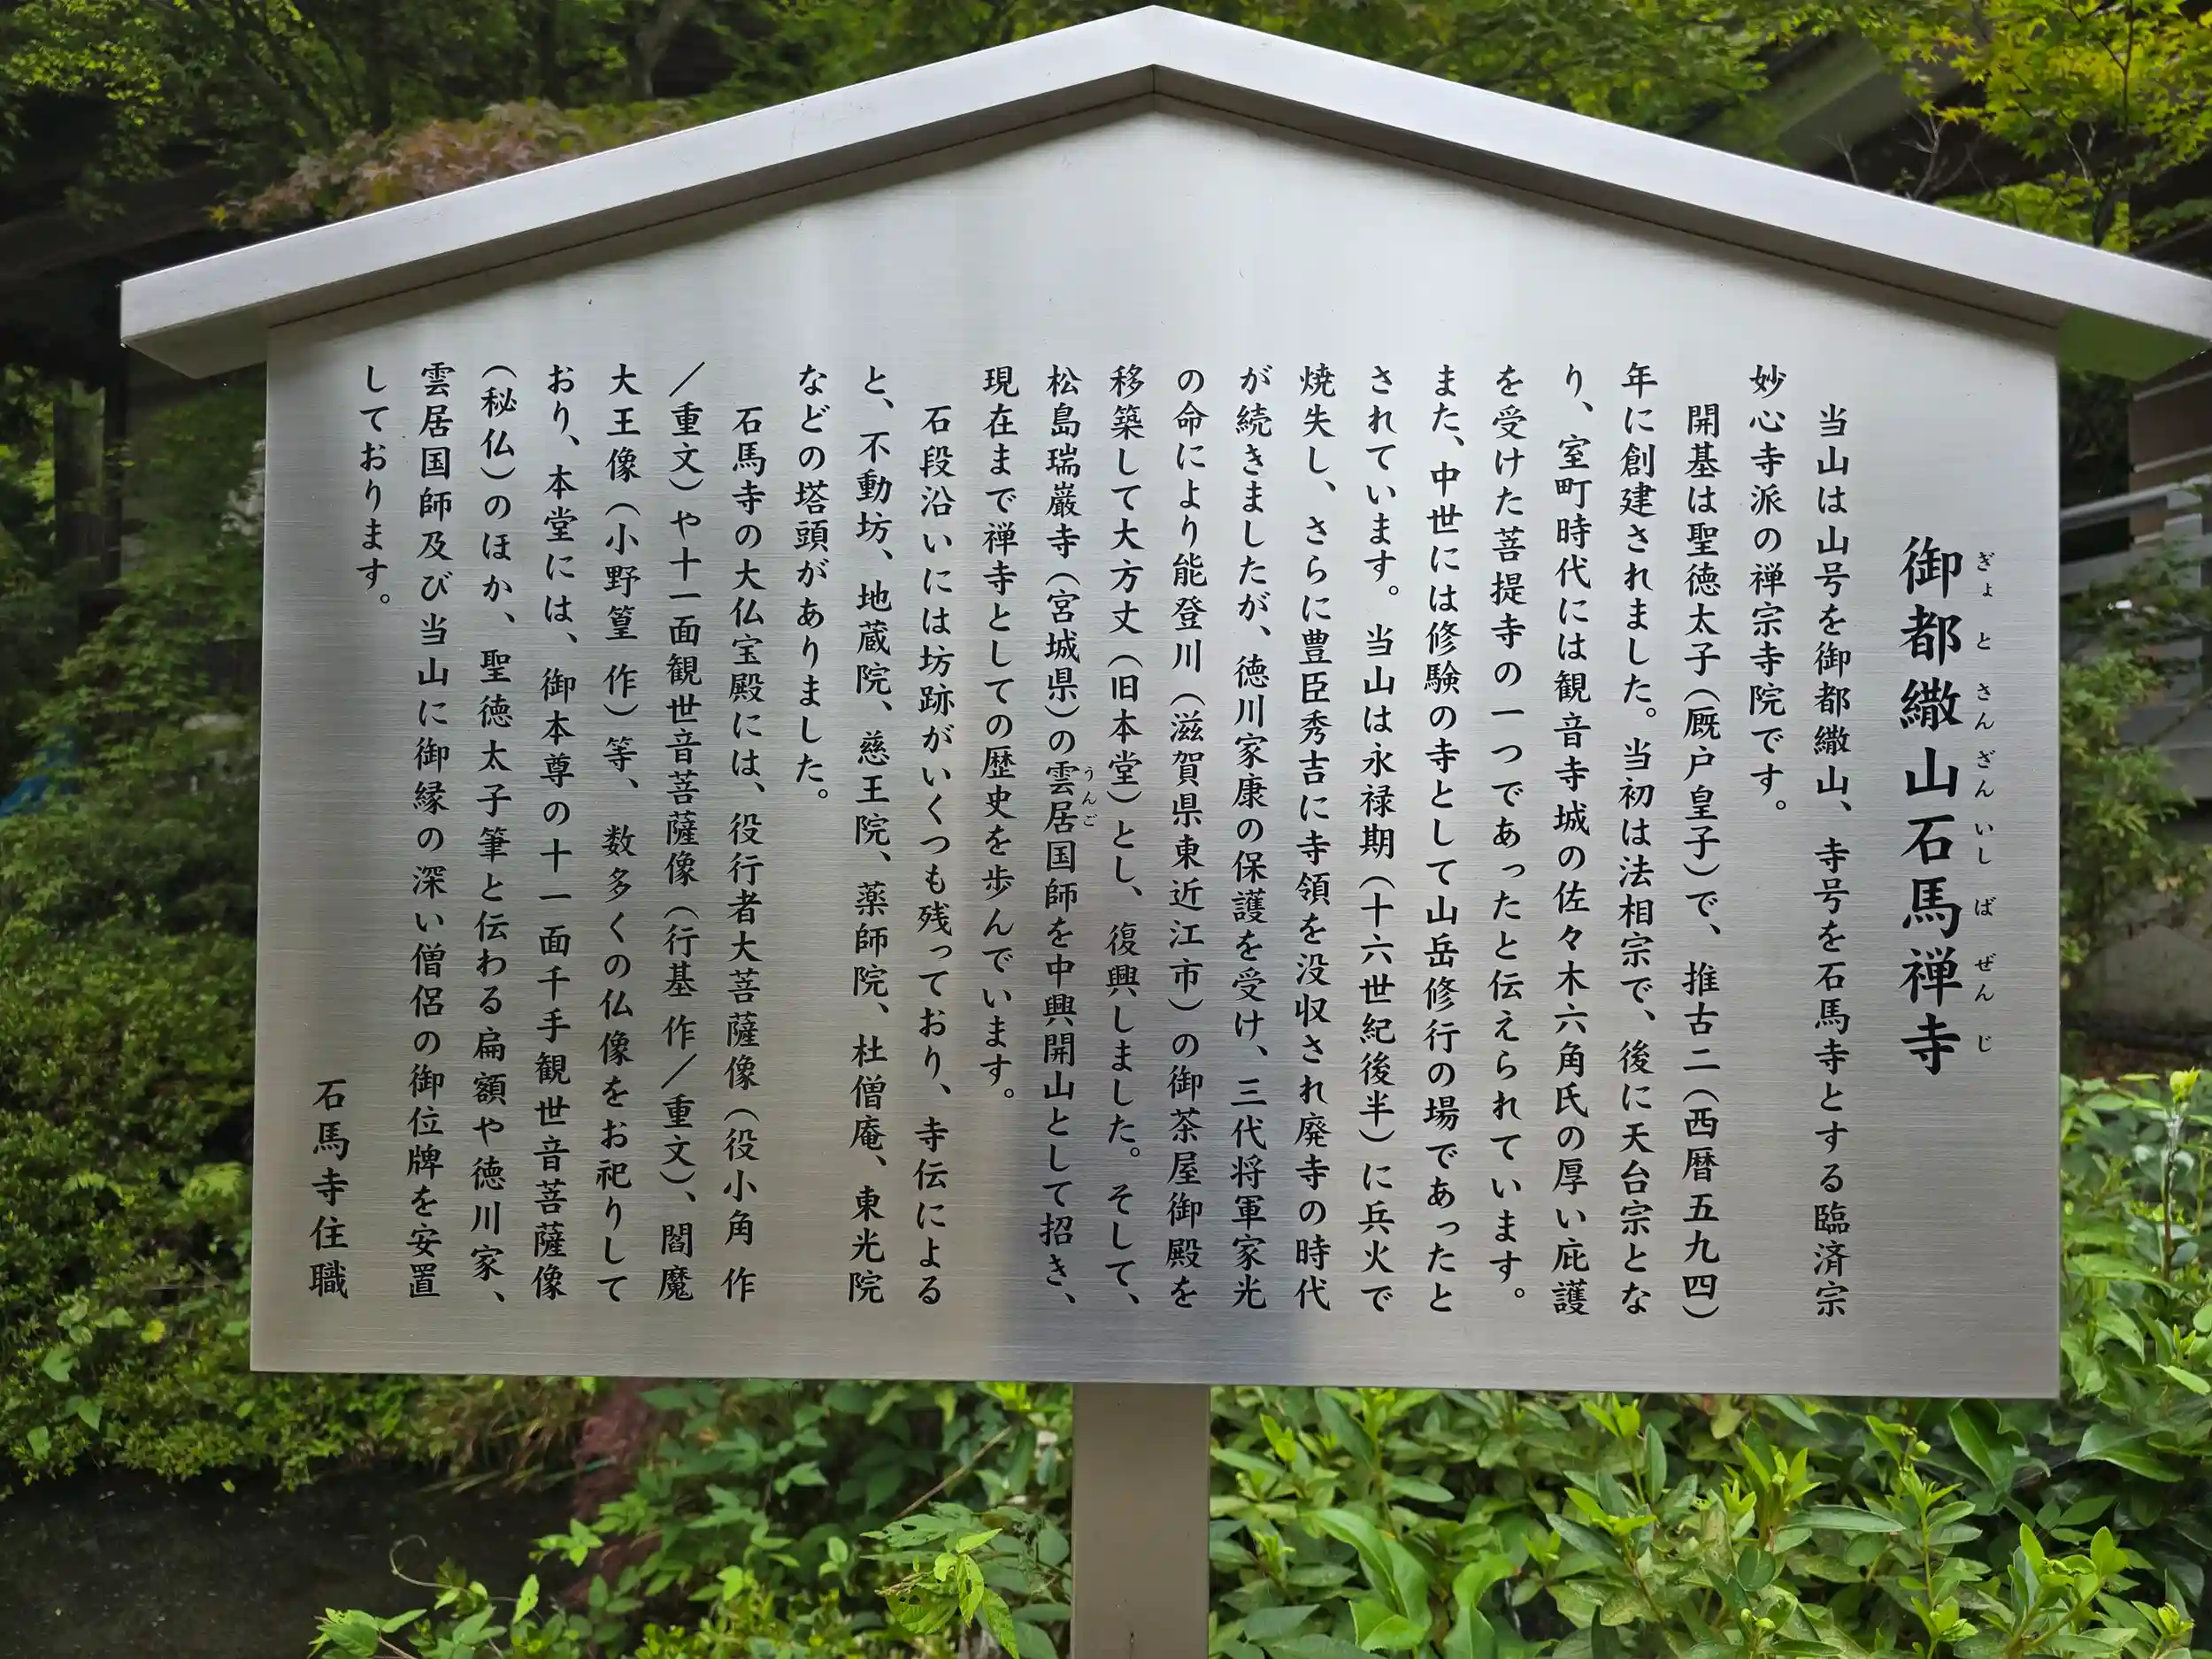 御都繖山石馬禅寺
ぎょとさんざんいしばぜんじ
当山は山号を御都繖山、寺号を石馬寺とする臨済宗
妙心寺派の禅宗寺院です。
開基は聖徳太子（厩戸皇子）で、推古二（西暦五九四）
年に創建されました。当初は法相宗で、後に天台宗とな
り、室町時代には観音寺城の佐々木六角氏の厚い庇護
を受けた菩提寺の一つであったと伝えられています。
また、中世には修験の寺として山岳修行の場であったと
されています。当山は永禄期（十六世紀後半）に兵火で
焼失し、さらに豊臣秀吉に寺領を没収され廃寺の時代
が続きましたが、徳川家康の保護を受け、三代将軍家光
の命により能登川（滋賀県東近江市）の御茶屋御殿を
移築して大方丈（旧本堂）とし、復興しました。そして、
松島瑞巌寺（宮城県）の雲居国師を中興開山として招き、
うんご
現在まで禅寺としての歴史を歩んでいます。
石段沿いには坊跡がいくつも残っており、寺伝による
と、不動坊、地蔵院、慈王院、薬師院、杜僧庵、東光院
などの塔頭がありました。
石馬寺の大仏宝殿には、役行者大菩薩像（役小角 作
／重文）や十一面観世音菩薩像（行基 作／重文）、閻魔
大王像（小野篁 作）等、数多くの仏像をお祀りして
おり、本堂には、御本尊の十一面千手観世音菩薩像
（秘仏）のほか、聖徳太子筆と伝わる扁額や徳川家、
雲居国師及び当山に御縁の深い僧侶の御位牌を安置
しております。
石馬寺住職